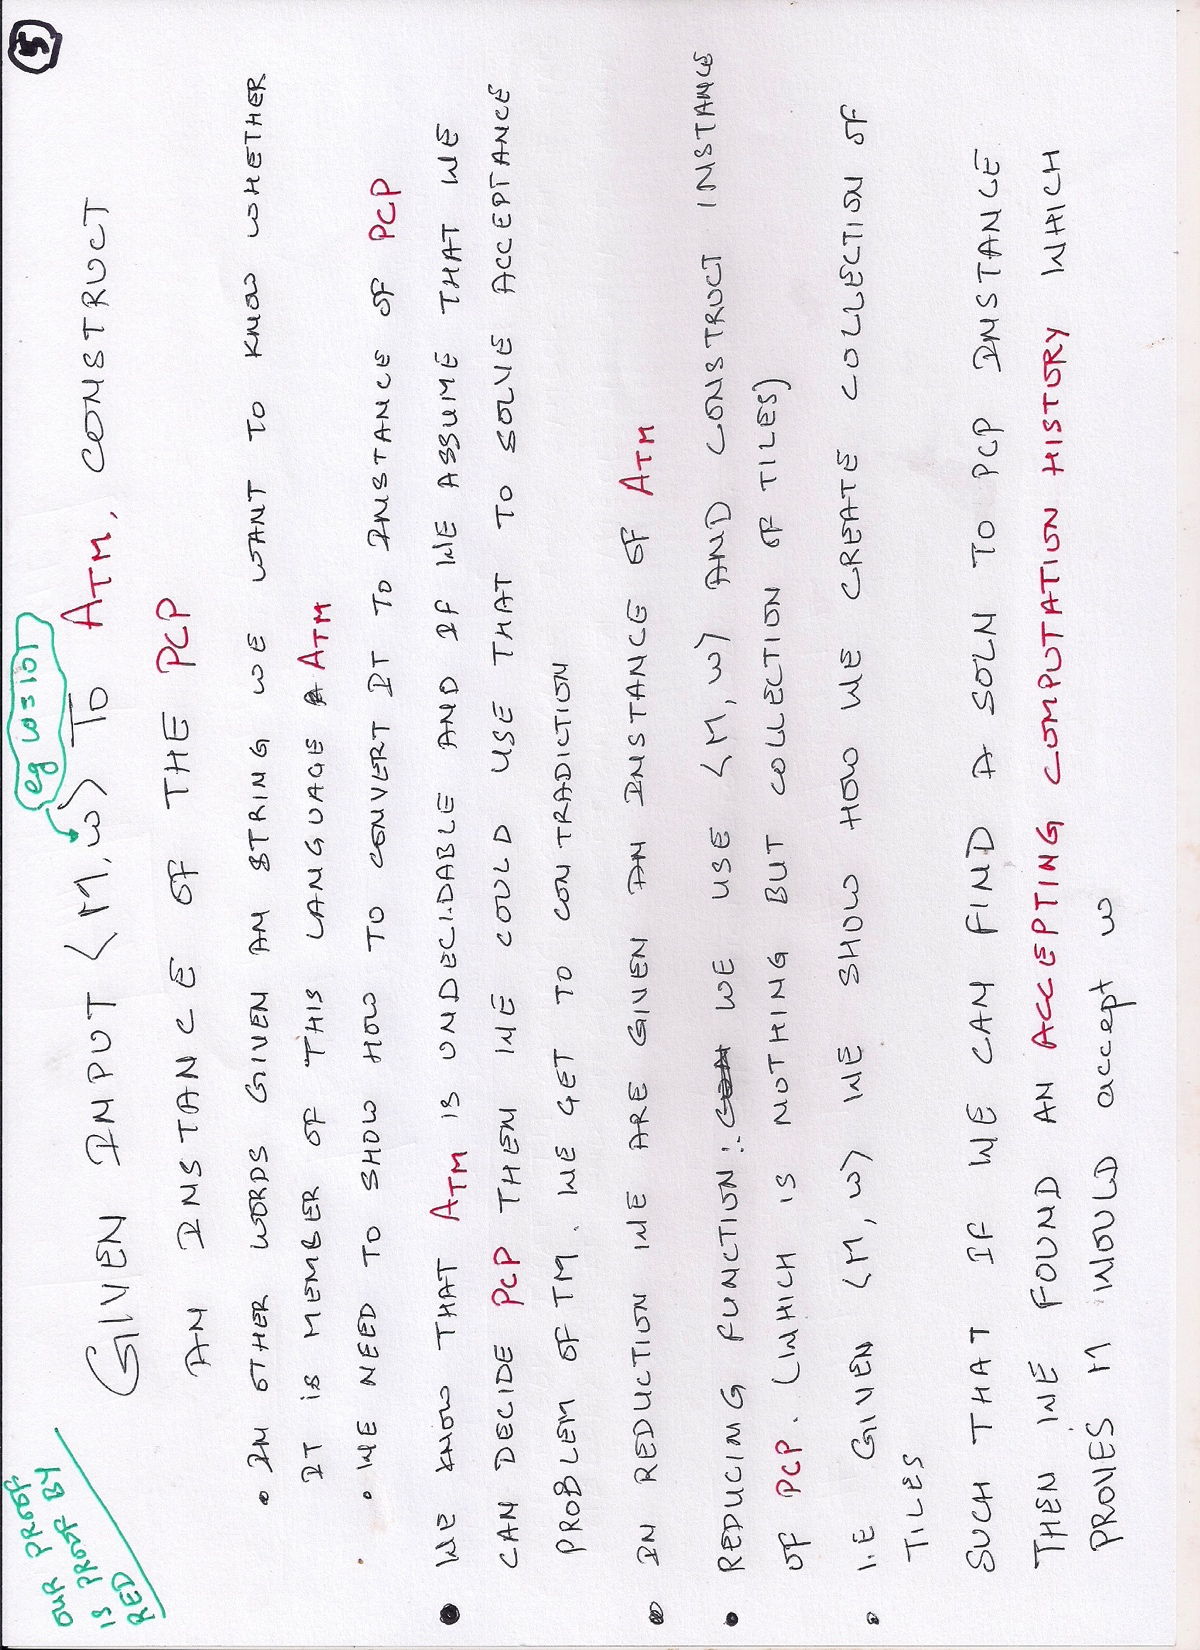 5
OUR PROOF
IS PROOF BY
RED
eg w=101
GIVEN INPUT ⟨M,w⟩ TO ATM, CONSTRUCT
AN INSTANCE OF THE PCP
• IN OTHER WORDS GIVEN AN STRING WE WANT TO KNOW WHETHER
IT IS MEMBER OF THIS LANGUAGE ATM
• WE NEED TO SHOW HOW TO CONVERT IT TO INSTANCE OF PCP
• WE KNOW THAT ATM IS UNDECIDABLE AND IF WE ASSUME THAT WE
CAN DECIDE PCP THEN WE COULD USE THAT TO SOLVE ACCEPTANCE
PROBLEM OF TM. WE GET TO CONTRADICTION
• IN REDUCTION WE ARE GIVEN AN INSTANCE OF ATM
• REDUCING FUNCTION: WE USE ⟨M, w⟩ AND CONSTRUCT INSTANCE
OF PCP. (WHICH IS NOTHING BUT COLLECTION OF TILES)
• I.E GIVEN ⟨M, w⟩ WE SHOW HOW WE CREATE COLLECTION OF
TILES
SUCH THAT IF WE CAN FIND A SOLN TO PCP INSTANCE
THEN WE FOUND AN ACCEPTING COMPUTATION HISTORY WHICH
PROVES M WOULD accept w